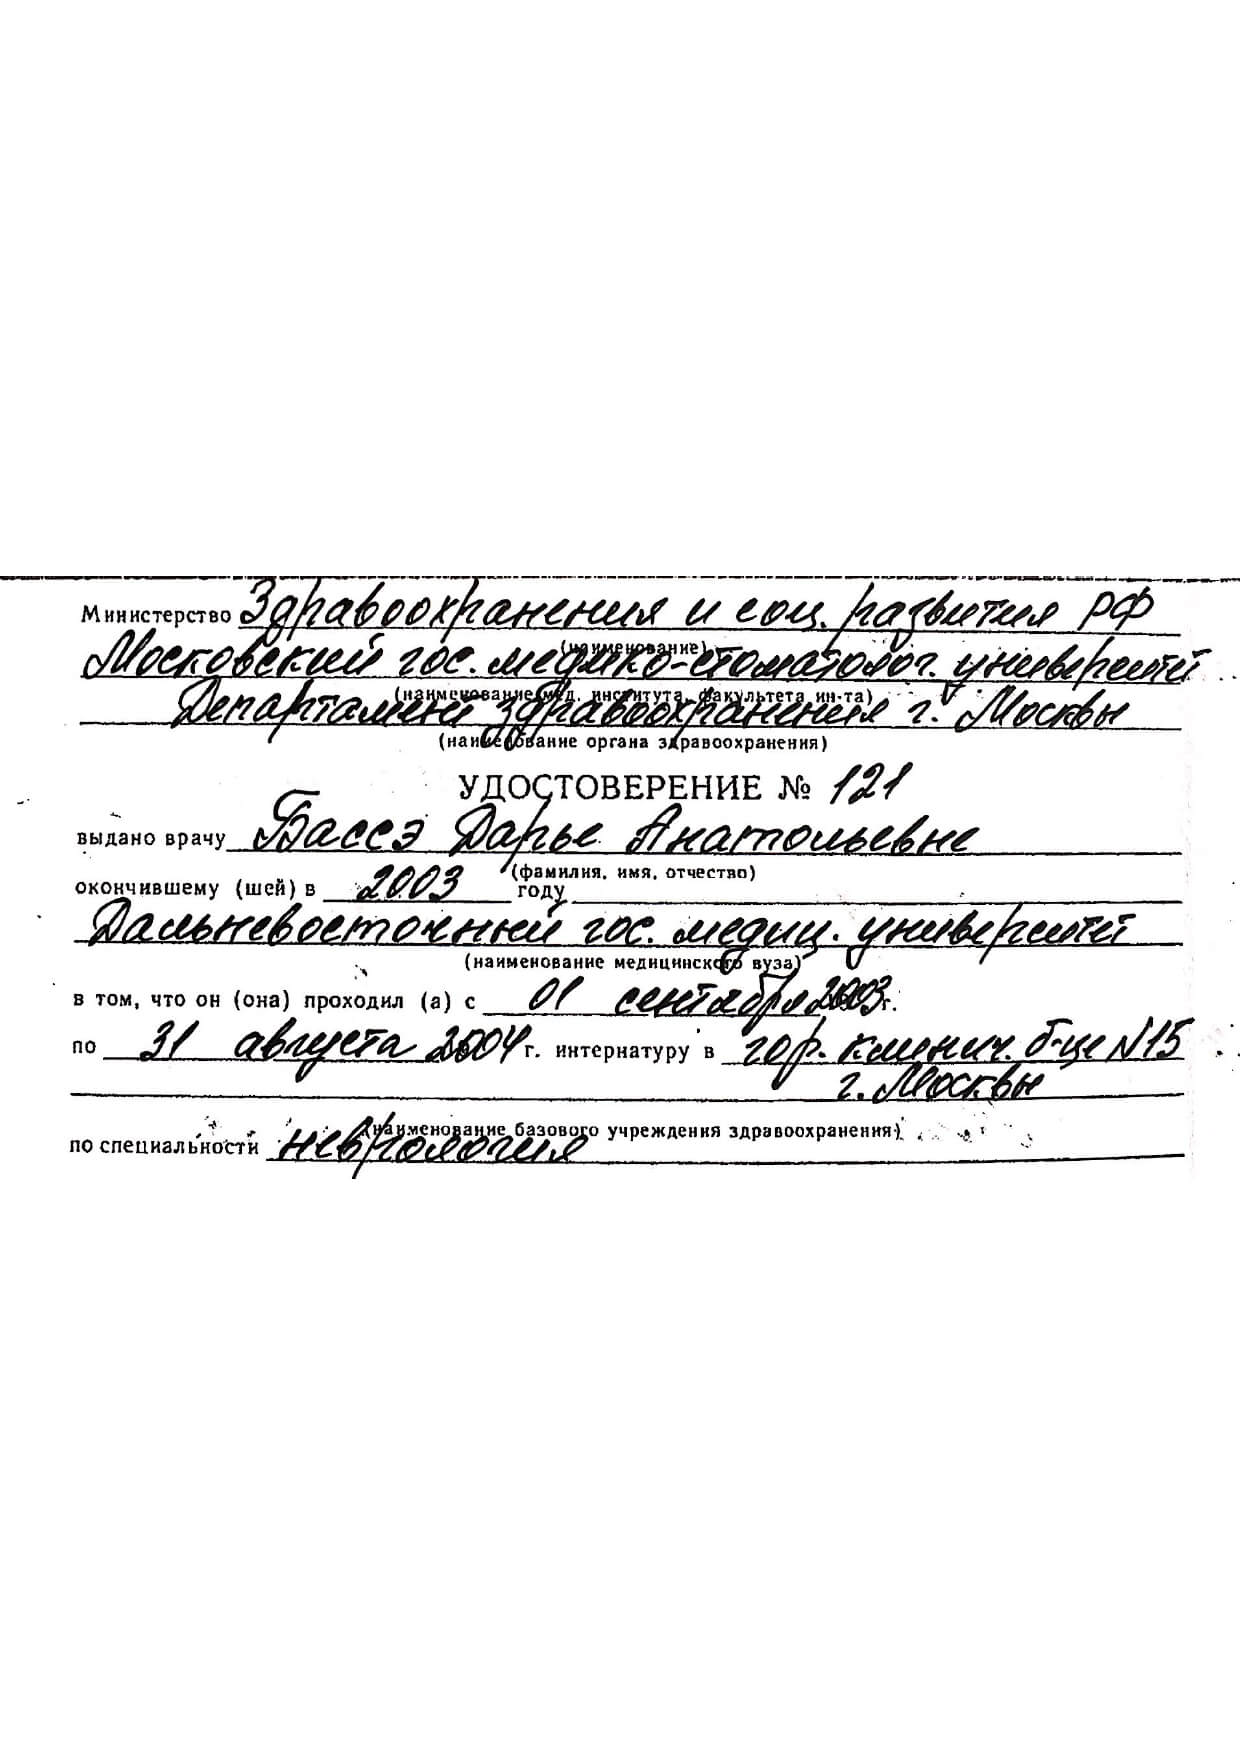 Министерство Здравоохранения и соц. развития РФ
(наименование)
Московский гос. медико-стоматолог. университет
(наименование мед. института, факультета ин-та)
Департамент здравоохранения г. Москвы
(наименование органа здравоохранения)
УДОСТОВЕРЕНИЕ № 121
выдано врачу Бассэ Дарье Анатольевне
(фамилия, имя, отчество)
окончившему (шей) в 2003 году
Дальневосточный гос. медиц. университет
(наименование медицинского вуза)
в том, что он (она) проходил (а) с 01 сентября 2003 г.
по 31 августа 2004 г. интернатуру в гор. клинич. б-це N15
г. Москвы
(наименование базового учреждения здравоохранения)
по специальности неврология